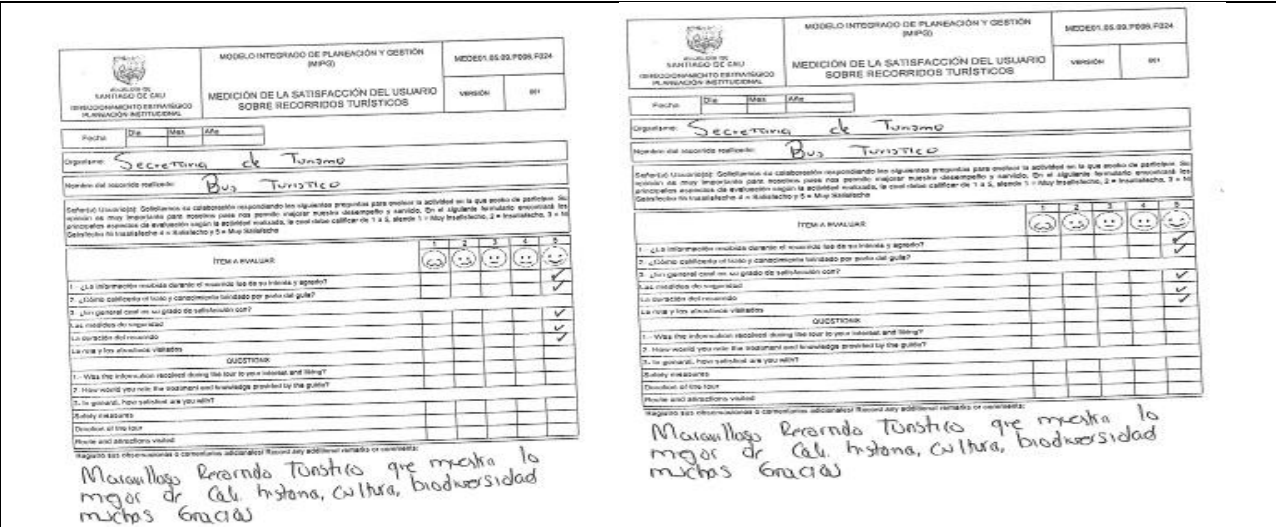 ALCALDÍA DE
SANTIAGO DE CALI
DIRECCIONAMIENTO ESTRATÉGICO
PLANEACIÓN INSTITUCIONAL
MODELO INTEGRADO DE PLANEACIÓN Y GESTIÓN
(MIPG)
MEDICIÓN DE LA SATISFACCIÓN DEL USUARIO
SOBRE RECORRIDOS TURÍSTICOS
MEDE01.05.09.P006.F024
VERSIÓN 001
Fecha: Día Mes Año
Organismo: Secretaria de Turismo
Nombre del recorrido realizado: Bus Turistico
Señor(a) Usuario(a): Solicitamos su colaboración respondiendo las siguientes preguntas para evaluar la actividad en la que acaba de participar. Su
opinión es muy importante para nosotros pues nos permite mejorar nuestro desempeño y servicio. En el siguiente formulario encontrará los
principales aspectos de evaluación según la actividad realizada, la cual debe calificar de 1 a 5, siendo 1 = Muy Insatisfecho, 2 = Insatisfecho, 3 = Ni
Satisfecho Ni Insatisfecho 4 = Satisfecho y 5 = Muy Satisfecho
ÍTEM A EVALUAR 1 2 3 4 5
1.- ¿La información recibida durante el recorrido fue de su interés y agrado?
2. ¿Cómo calificaría el trato y conocimiento brindado por parte del guía?
3. ¿En general cual es su grado de satisfacción con?
Las medidas de seguridad
La duración del recorrido
La ruta y los atractivos visitados
QUESTIONS
1.- Was the information received during the tour to your interest and liking?
2. How would you rate the treatment and knowledge provided by the guide?
3.- In general, how satisfied are you with?
Safety measures
Duration of the tour
Route and attractions visited
Registre sus observaciones o comentarios adicionales/ Record any additional remarks or comments:
Maravilloso Recorrido Turístico que muestra lo
mejor de Cali. historia, cultura, biodiversidad
muchas Gracias
ALCALDÍA DE
SANTIAGO DE CALI
DIRECCIONAMIENTO ESTRATÉGICO
PLANEACIÓN INSTITUCIONAL
MODELO INTEGRADO DE PLANEACIÓN Y GESTIÓN
(MIPG)
MEDICIÓN DE LA SATISFACCIÓN DEL USUARIO
SOBRE RECORRIDOS TURÍSTICOS
MEDE01.05.09.P006.F024
VERSIÓN 001
Fecha: Día Mes Año
Organismo: Secretaria de Turismo
Nombre del recorrido realizado: Bus Turistico
Señor(a) Usuario(a): Solicitamos su colaboración respondiendo las siguientes preguntas para evaluar la actividad en la que acaba de participar. Su
opinión es muy importante para nosotros pues nos permite mejorar nuestro desempeño y servicio. En el siguiente formulario encontrará los
principales aspectos de evaluación según la actividad realizada, la cual debe calificar de 1 a 5, siendo 1 = Muy Insatisfecho, 2 = Insatisfecho, 3 = Ni
Satisfecho Ni Insatisfecho 4 = Satisfecho y 5 = Muy Satisfecho
ÍTEM A EVALUAR 1 2 3 4 5
1.- ¿La información recibida durante el recorrido fue de su interés y agrado?
2. ¿Cómo calificaría el trato y conocimiento brindado por parte del guía?
3. ¿En general cual es su grado de satisfacción con?
Las medidas de seguridad
La duración del recorrido
La ruta y los atractivos visitados
QUESTIONS
1.- Was the information received during the tour to your interest and liking?
2. How would you rate the treatment and knowledge provided by the guide?
3.- In general, how satisfied are you with?
Safety measures
Duration of the tour
Route and attractions visited
Registre sus observaciones o comentarios adicionales/ Record any additional remarks or comments:
Maravilloso Recorrido Turístico que muestra lo
mejor de Cali. historia, cultura, biodiversidad
muchas Gracias